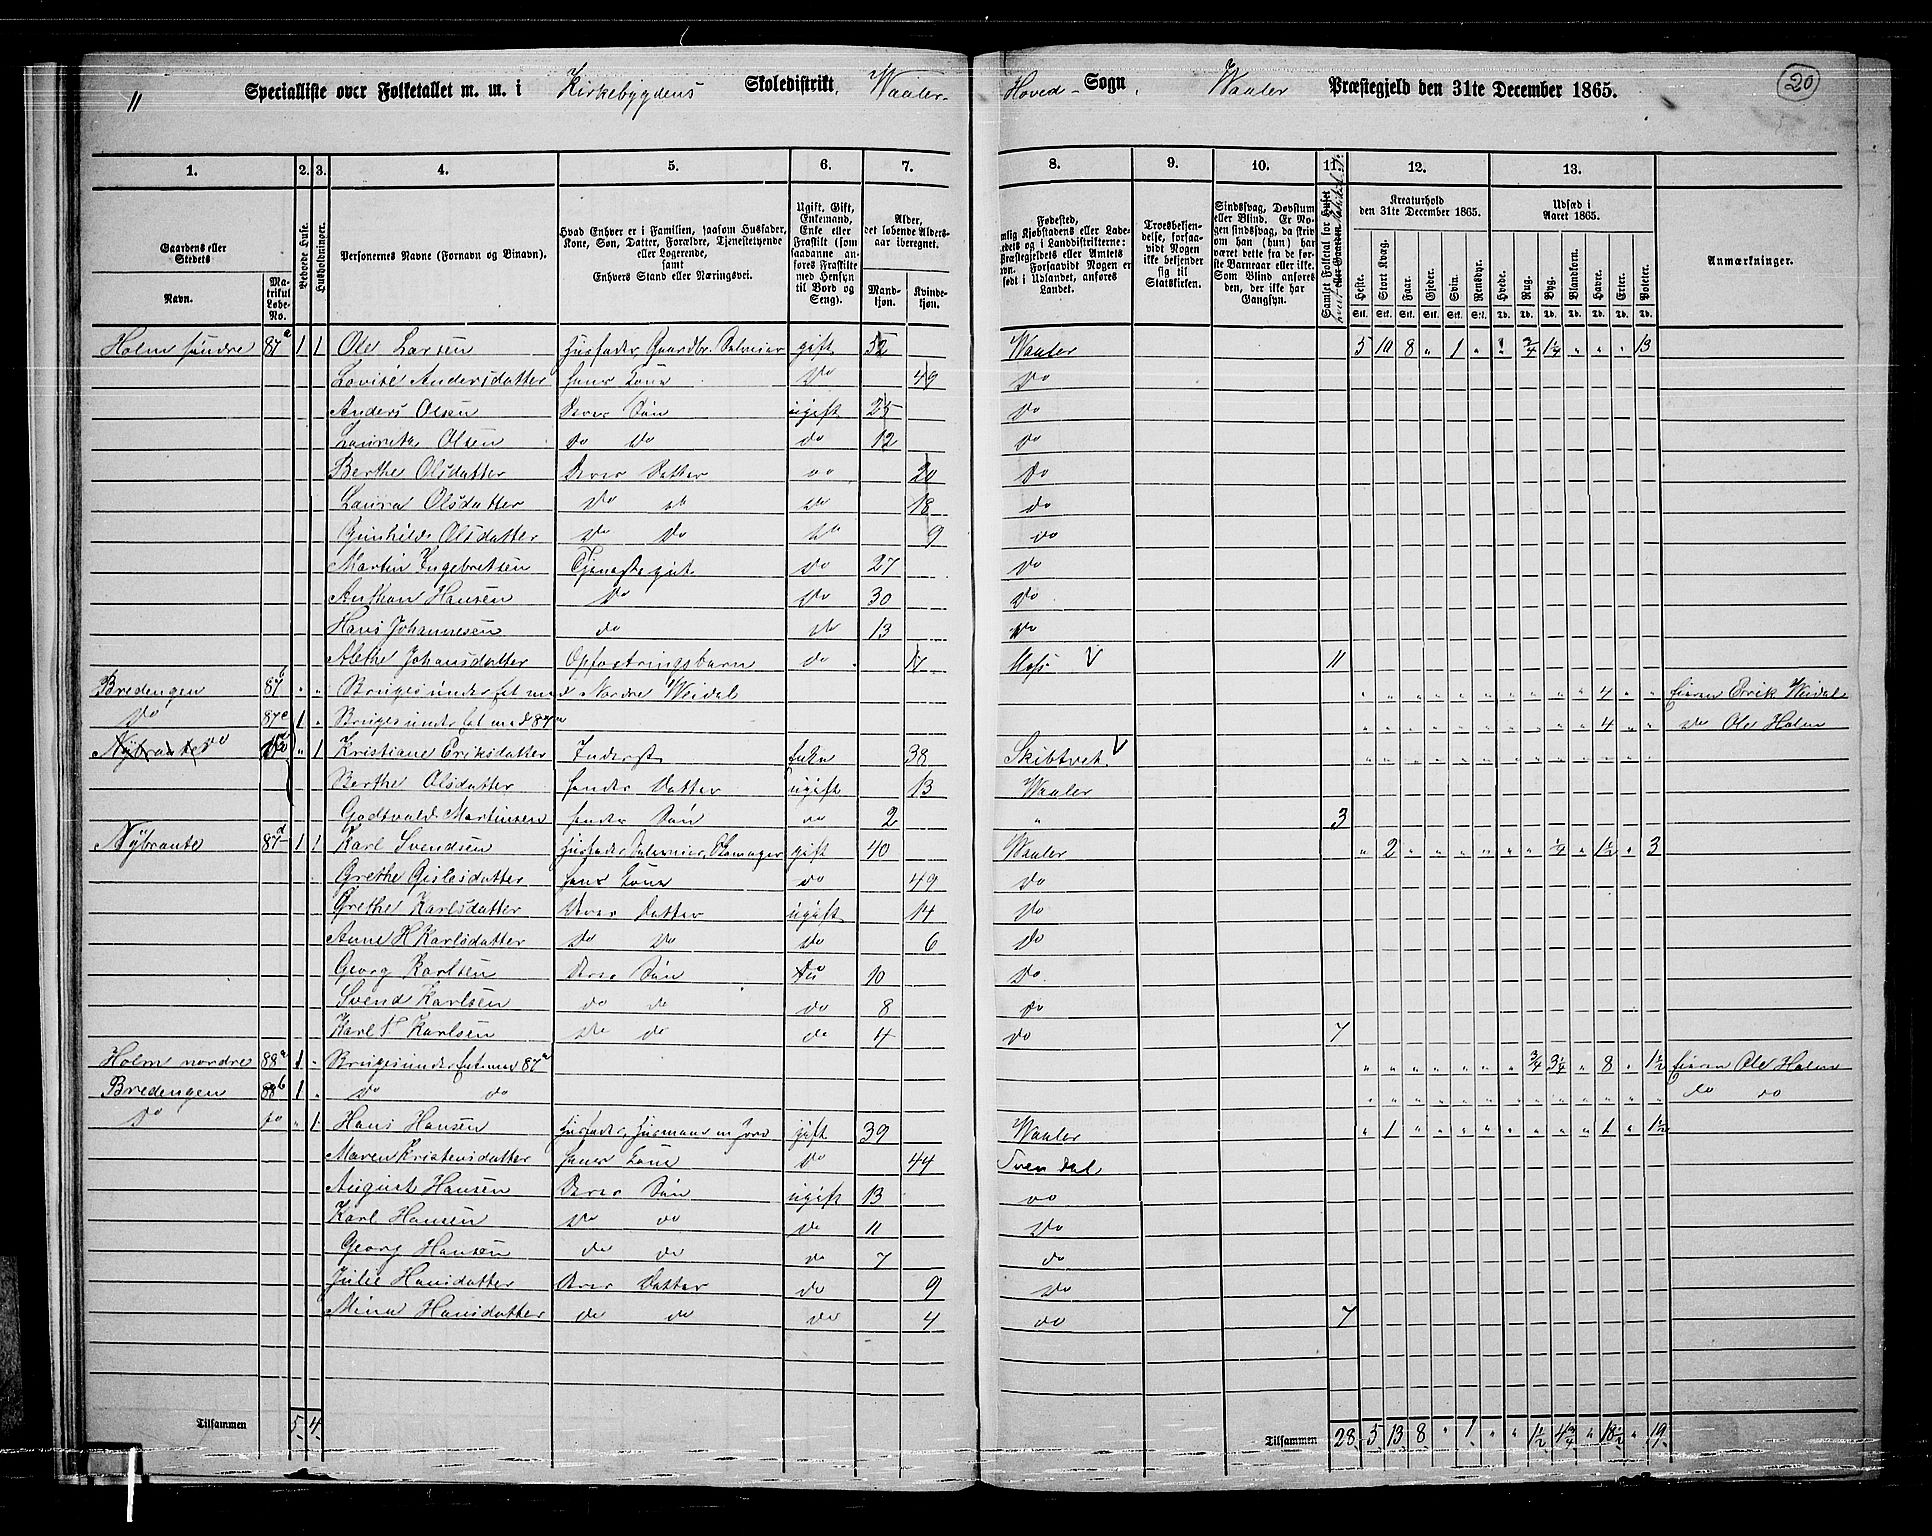 11 Specialliste over Folketallet m. m. i Kirkebygdens Skoledistrikt, Waaler Hoved- Sogn, Waaler Præstegjeld den 31te December 1865. 20
1. 2. 3. 4. 5. 6. 7. 8. 9. 10. 11. 12. 13.
Gaardens eller Stedets
Navn. Matrikul Løbe-No.
Beboede Huse.
Husholdninger.
Personernes Navne (Fornavn og Binavn).
Hvad Enhver er i Familien, saasom Husfader, Kone, Søn, Datter, Forældre, Tjenestetyende eller Logerende, samt Enhvers Stand eller Næringsvei.
Ugift, Gift, Enkemand, Enke eller Fraskilt (som saadanne anføres Fraskilte med Hensyn til Bord og Seng).
Alder, det løbende Aldersaar iberegnet.
Mandkjøn. Kvindekjøn.
Fødested,
Troesbekjendelse, forsaavidt Nogen ikke bekjender sig til Statskirken.
Sindssvag, Døvstum eller Blind. Er Nogen sindssvag, da skriv om han (hun) har været dette fra de første Barneaar eller ikke. Som Blind anføres den, der ikke har Gangsyn.
Samlet Folketal for Huset
Kreaturhold den 31te December 1865.
Heste. Stort Kvæg. Faar. Gjeder. Svin. Rensdyr.
Udsæd i Aaret 1865.
Hvede. Rug. Byg. Blandkorn. Havre. Erter. Poteter.
Anmærkninger.
Holm søndre 87a 1 1 Ole Larsen Husfader, Gaardbr. Selveier gift 52 Waaler 5 10 8 „ 1 „ „ 3/4 1 1/4 „ „ „ 13
Lovise Andersdatter hans Kone do 49 do
Anders Olsen Deres Søn ugift 25 do
Lauritz Olsen do do do 12 do
Berthe Olsdatter Deres Datter do 20 do
Laura Olsdatter do do do 18 do
Gunhilde Olsdatter do do do 9 do
Martin Ingebretsen Tjenestegut do 27 do
Anthon Hansen do do 30 do
Hans Johannesen do do 13 do
Alethe Johansdatter Opfostringsbarn do Moss 11
Bredengen 87b „ „ Bruges under et med Nordre Weidal „ „ „ „ „ „ „ „ „ „ 4 „ „ Eieren Erik Weidal
do 87c 1 „ Bruges under et med 87a „ „ „ „ „ „ „ „ „ „ 4 „ „ do Ole Holm
Nybraate do do „ 1 Kristiane Eriksdatter Inderst Enke 38 Skibtvet „ „ „ „ „ „ „ „ „ „ „ „ „
Berthe Olsdatter hendes Datter ugift 13 Waaler
Godtvald Martinsen hendes Søn do 2 „ 3
Nybraate 87d 1 1 Karl Svendsen Husfader, Selveier, gift 40 Waaler „ 2 „ „ „ „ „ „ 1/4 „ 1 1/2 „ 3
Grethe Gislesdatter hans Kone do 49 do
Grethe Karlsdatter Deres Datter ugift 14 do
Anne H Karlsdatter do do do 6 do
Georg Karlsen Deres Søn do 10 do
Svend Karlsen do do do 8 do
Karl Karlsen do do do 4 do 7
Holm nordre 88a 1 „ Bruges under et med 87a „ „ „ „ „ „ „ 3/4 3 1/4 „ 8 „ 1 1/2 Eieren Ole Holm
Bredengen 88b 1 „ do do „ „ „ „ „ „ „ „ „ „ „ „ „ do do
do do „ 1 Hans Hansen Husfader, Husmand m Jord gift 39 Waaler „ 1 „ „ „ „ „ „ „ „ 1 „ 1 1/2
Maren Kristensdatter hans Kone do 44 Svendal
August Hansen Deres Søn ugift 13 do
Karl Hansen do do do 11 do
Georg Hansen do do do 7 do
Julie Hansdatter Deres Datter do 9 do
Mina Hansdatter do do do 4 do 7
Tilsammen 5 4 Tilsammen 28 5 13 8 „ 1 „ „ 1 1/2 4 3/4 „ 18 1/2 „ 19